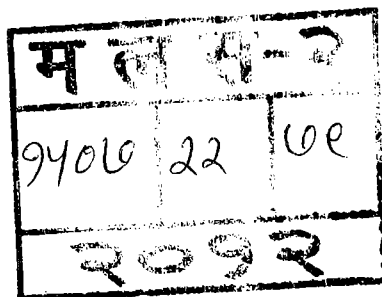 म ल स - २
१५०७ २२ ७९
२०१२